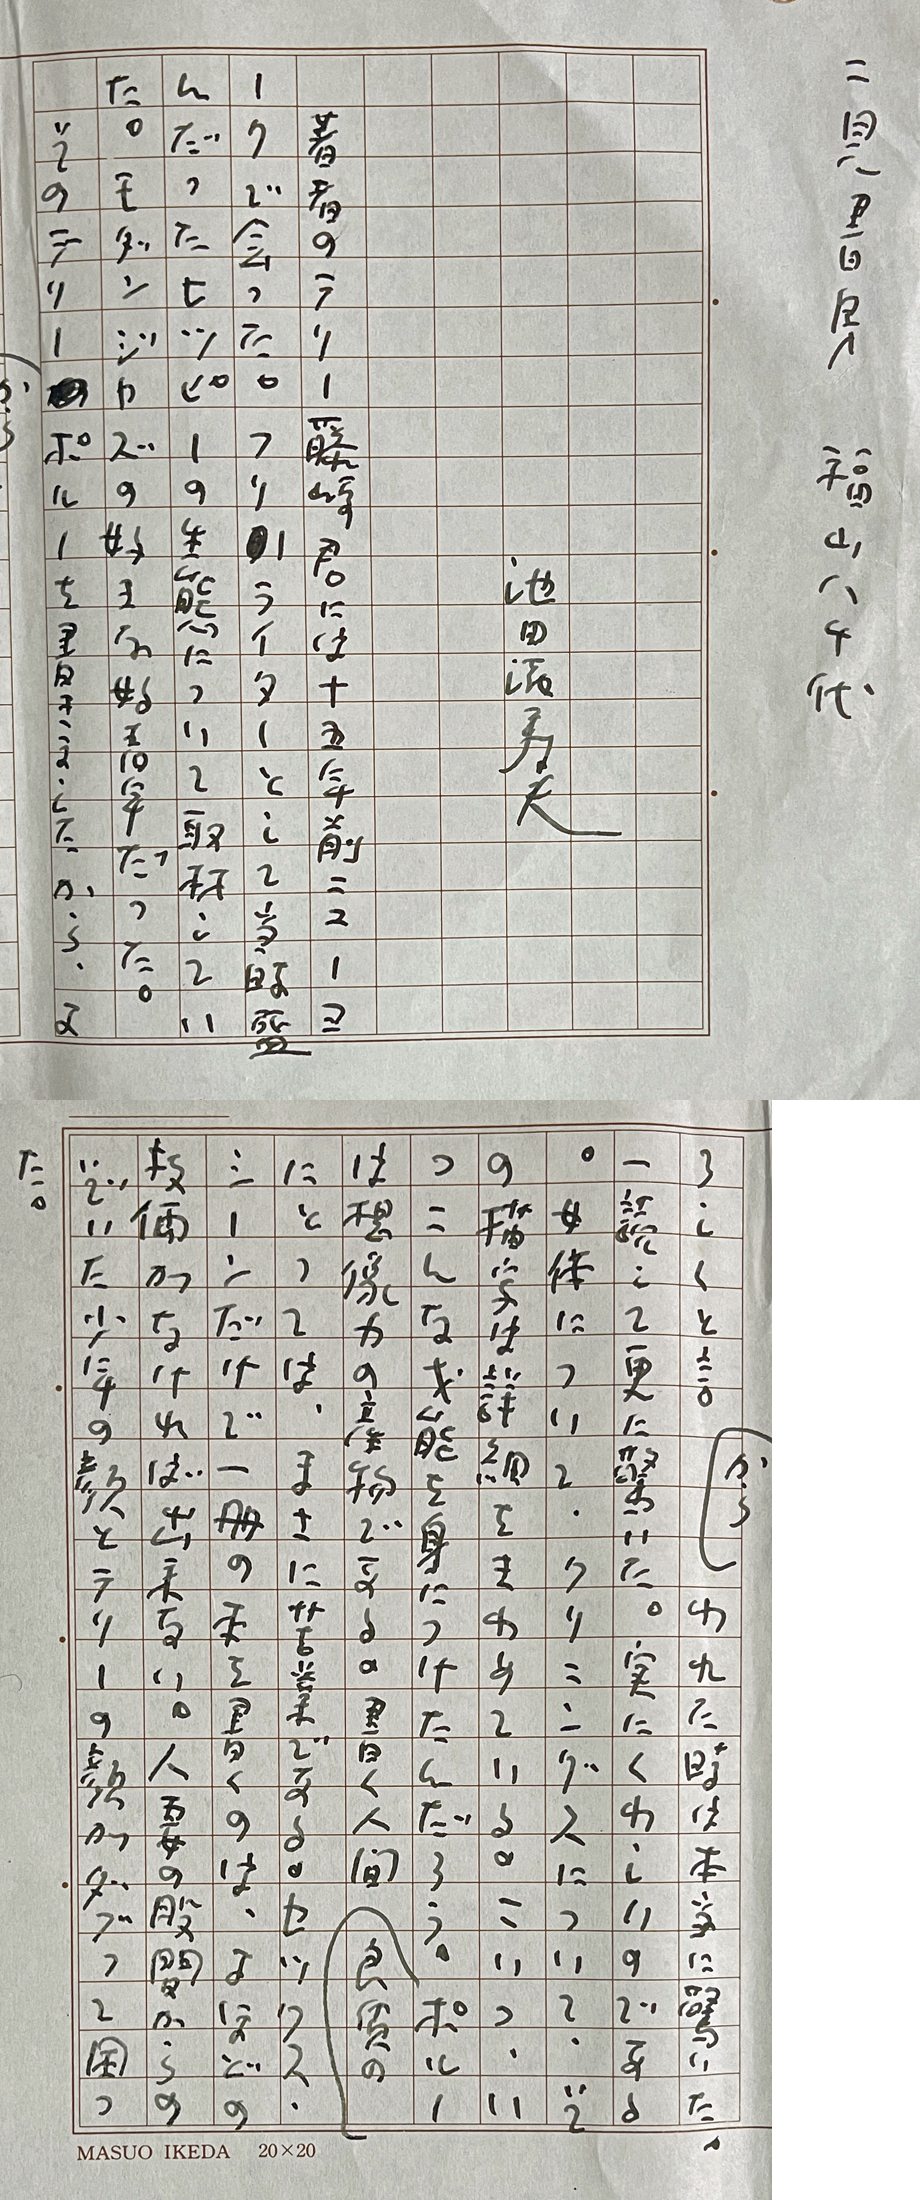 二見暁
福山八千代
池田満寿夫
著者のテリー藤崎君には十五年前ニューヨ
ークで会った。フリーライターと当時盛
んだったヒッピーの生態について取材してい
た。モダンジャズの好きな好青年だった。
そのテリーがポルノーを書き出したから、ま
がら
しくと言われた時は本当に驚いた。
一読して更に驚いた。実にくわしいので ある
。女体について、クリニングスについて、その
の描写は詳細をきわめている。こいつ、いつ
つこんな才能を身につけたんだろう。ポルノー
は想像力の産物である。書く人間
良質の
にとっては、まさに芸当である。セックス・
シーンだけで一冊の本を書くのは、よほどの
技価がなければ出来ない。人妻の股間からの
ぞいた少年の顔とテリーの顔がダブって困っ
た。
MASUO IKEDA 20×20